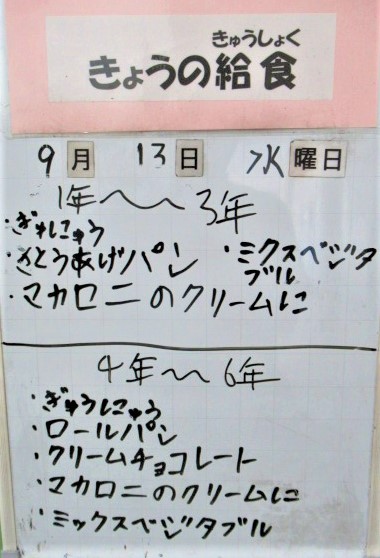 きゅうしょく
きょうの給食
9月 13日 水曜日
1年〜3年
・ぎゅにゅう
・さとうあげパン
・ミクスベジタ
ブル
・マカロニのクリームに
4年〜6年
・ぎゅうにゅう
・ロールパン
・クリームチョコレート
・マカロニのクリームに
・ミックスベジタブル